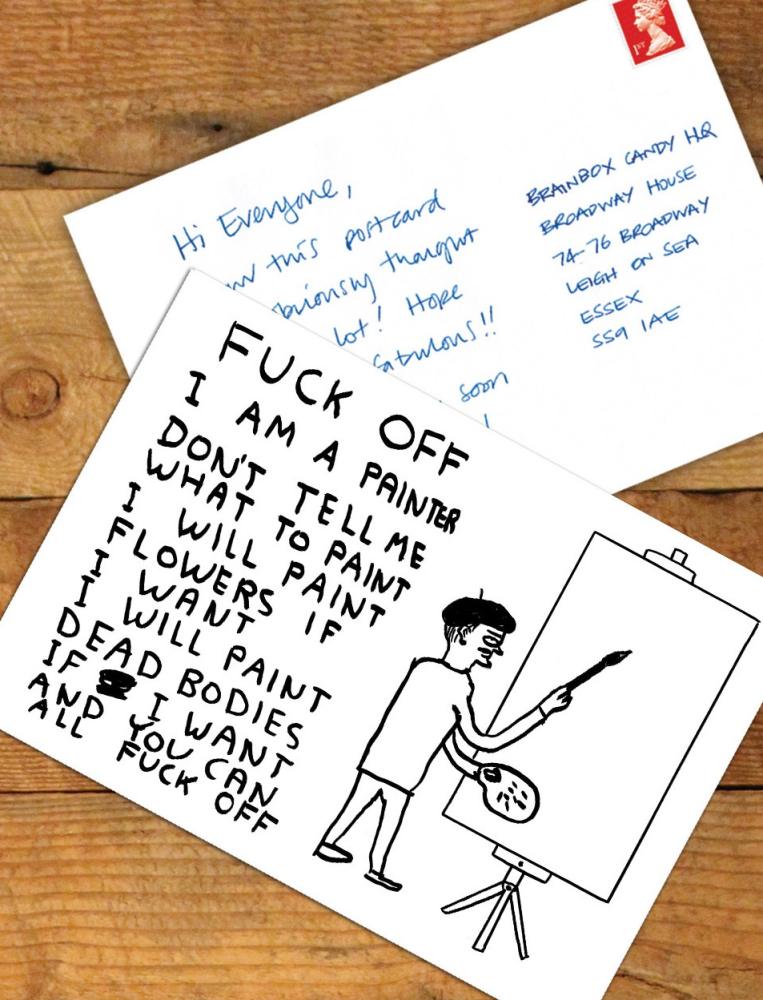 Hi Everyone,
this postcard
thought
lot! Hope
fabulous!!
soon
BRAINBOX CANDY HQ
BROADWAY HOUSE
74-76 BROADWAY
LEIGH ON SEA
ESSEX
SS9 1AE
1ST
FUCK OFF
I AM A PAINTER
DON'T TELL ME
WHAT TO PAINT
I WILL PAINT
FLOWERS IF
I WANT
I WILL PAINT
DEAD BODIES
IF I WANT
AND YOU CAN
ALL FUCK OFF